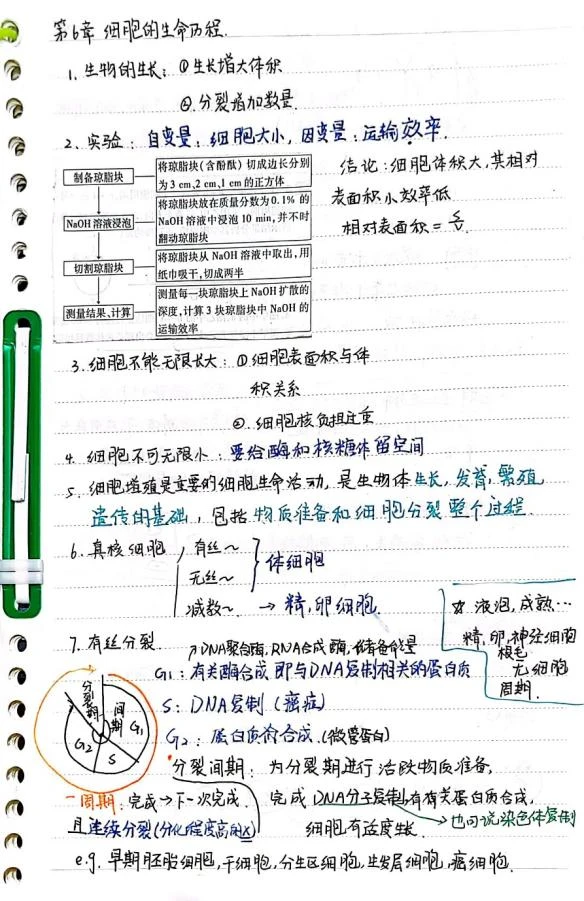 第6章 细胞的生命历程.
1. 生物的生长: ① 生长增大体积
②. 分裂增加数量.
2. 实验: 自变量: 细胞大小, 因变量: 运输效率.
制备琼脂块
将琼脂块(含酚酞)切成边长分别
为3 cm、2 cm、1 cm的正方体
NaOH溶液浸泡
将琼脂块放在质量分数为0.1%的
NaOH溶液中浸泡10 min,并不时
翻动琼脂块
切割琼脂块
将琼脂块从NaOH溶液中取出,用
纸巾吸干,切成两半
测量结果、计算
测量每一块琼脂块上NaOH扩散的
深度,计算3块琼脂块中NaOH的
运输效率
结论: 细胞体积大, 其相对
表面积小效率低
相对表面积 = S/V.
3. 细胞不能无限长大: ① 细胞表面积与体
积关系
②. 细胞核负担过重
4. 细胞不可无限小: 要给酶和核糖体留空间
5. 细胞增殖是重要的细胞生命活动, 是生物体生长, 发育, 繁殖
遗传的基础, 包括物质准备和细胞分裂整个过程.
6. 真核细胞
有丝~
无丝~
体细胞
减数~ → 精, 卵细胞.
☆ 液泡, 成熟…
精, 卵, 神经细胞
根毛
无细胞
周期.
7. 有丝分裂.
DNA聚合酶, RNA合成酶, 储备能量
G₁: 有关酶合成 即与DNA复制相关的蛋白质
S: DNA复制 (癌症)
G₂: 蛋白质的合成. (微管蛋白)
分裂期
间期
G₁
S
G₂
分裂间期: 为分裂期进行活跃物质准备,
一周期: 完成→下一次完成.
完成DNA分子复制, 有有关蛋白质合成,
且连续分裂(分化程度高的X)
细胞有适度生长.
→也可说染色体复制
e.g. 早期胚胎细胞, 干细胞, 分生区细胞, 生发层细胞, 癌细胞.